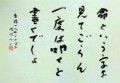 命という字を
見てごらん
一度は叩くと
書くでしょ